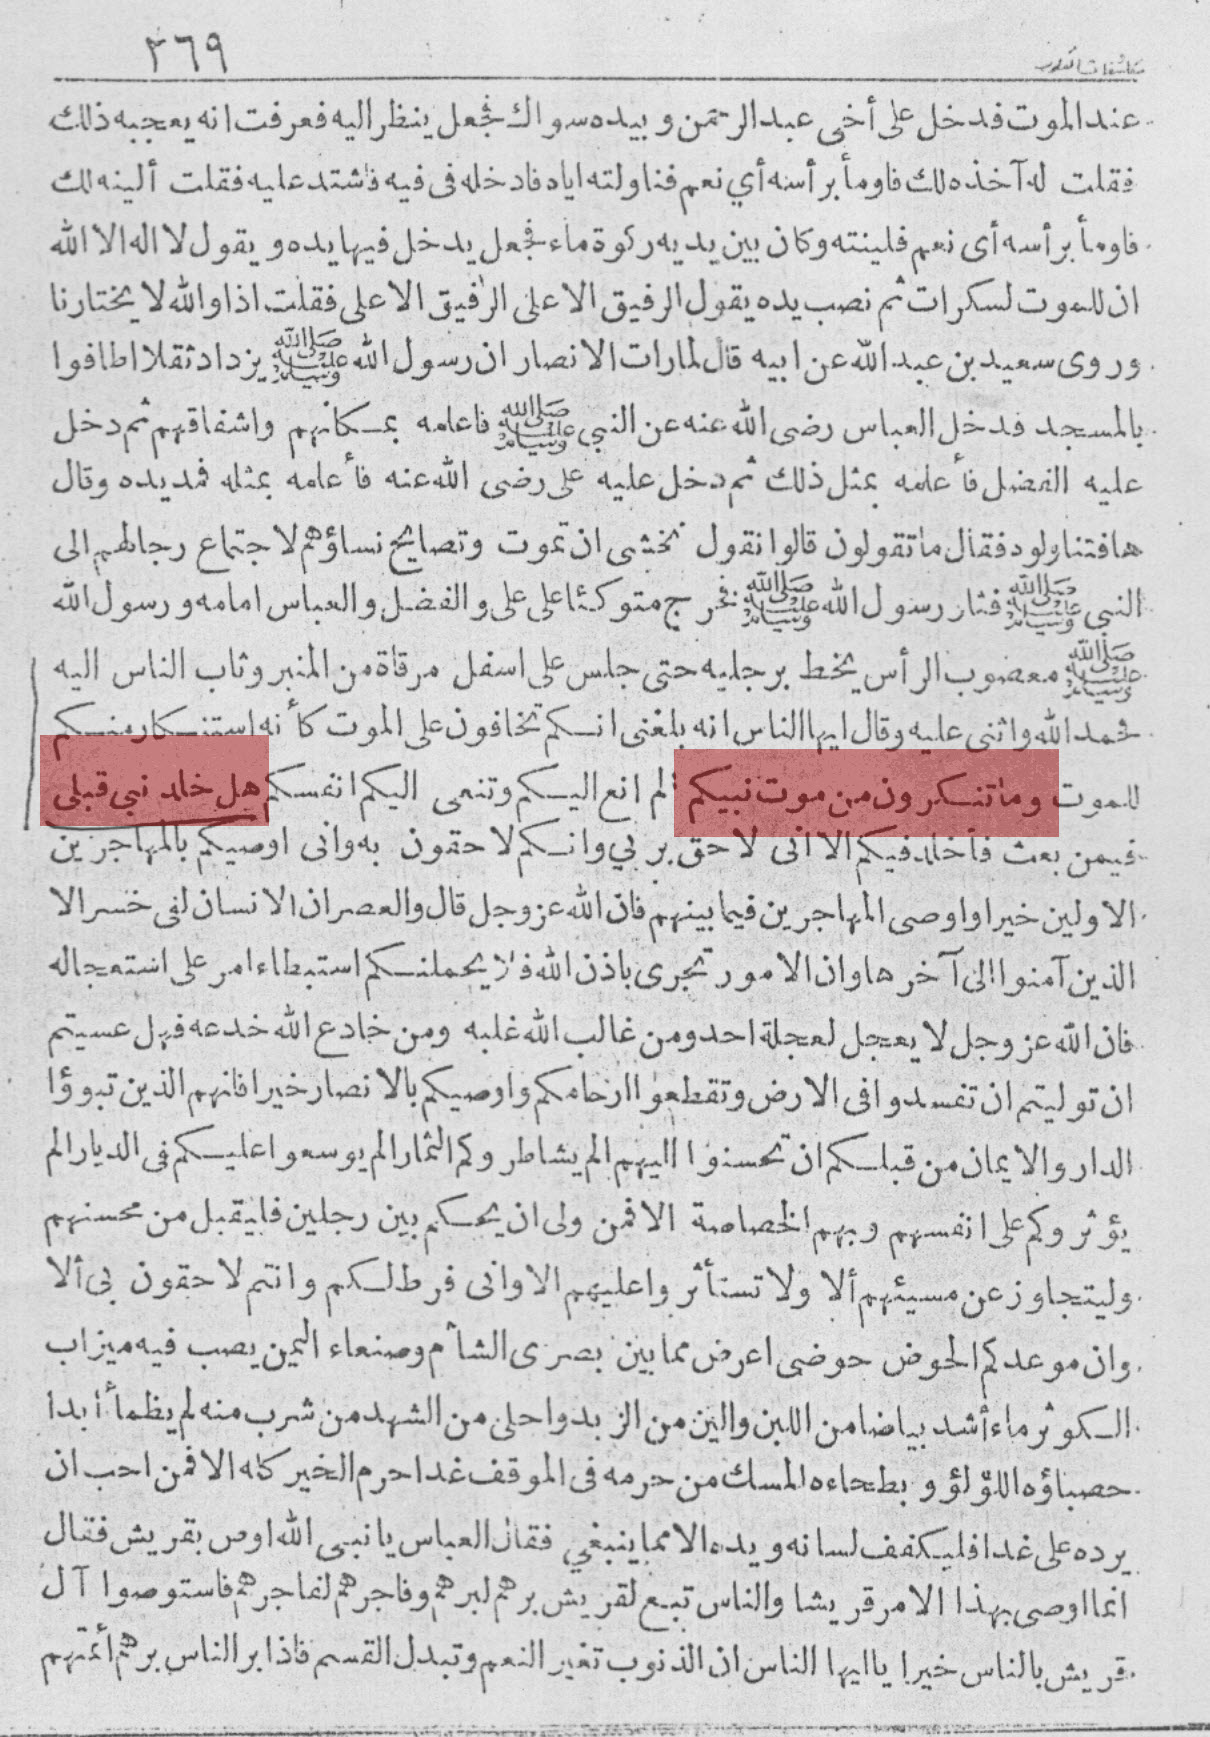 ٣٦٩
مكاشفات القلوب
عند الموت فدخل على أخى عبد الرحمن وبيده سواك فجعل ينظر اليه فعرفت انه يعجبه ذلك
فقلت له آخذه لك فاومأ برأسه أي نعم فناولته اياه فادخله فى فيه فاشتد عليه فقلت ألينه لك
فاومأ برأسه أى نعم فلينته وكان بين يديه ركوة ماء فجعل يدخل فيها يده ويقول لا اله الا الله
ان للموت لسكرات ثم نصب يده يقول الرفيق الاعلى الرفيق الاعلى فقلت اذا والله لا يختارنا
وروى سعيد بن عبد الله عن ابيه قال لما رات الانصار ان رسول الله ﷺ يزداد ثقلا اطافوا
بالمسجد فدخل العباس رضى الله عنه عن النبي ﷺ فاعلمه بمكانهم واشفاقهم ثم دخل
عليه الفضل فأعلمه بمثل ذلك ثم دخل عليه على رضى الله عنه فأعلمه بمثله فمد يده وقال
ها فتناولوه فقال ما تقولون قالوا نقول نخشى ان تموت وتصايح نساؤهم لاجتماع رجالهم الى
النبي ﷺ فثار رسول الله ﷺ فخرج متوكئا على على والفضل والعباس امامه ورسول الله
ﷺ معصوب الرأس يخط برجليه حتى جلس على اسفل مرقاة من المنبر وثاب الناس اليه
فحمد الله واثنى عليه وقال ايها الناس انه بلغنى انكم تخافون على الموت كأنه استنكار منكم
للموت وما تنكرون من موت نبيكم الم انع اليكم وتنعى اليكم انفسكم هل خلد نبي قبلى
فيمن بعث فأخلد فيكم الا انى لاحق بربي وانكم لاحقون به وانى اوصيكم بالمهاجرين
الاولين خيرا واوصى المهاجرين فيما بينهم فان الله عز وجل قال والعصر ان الانسان لفى خسر الا
الذين آمنوا الى آخرها وان الامور تجرى باذن الله فلا يحملنكم استبطاء امر على استعجاله
فان الله عز وجل لا يعجل لعجلة احد ومن غالب الله غلبه ومن خادع الله خدعه فهل عسيتم
ان توليتم ان تفسدوا فى الارض وتقطعوا ارحامكم واوصيكم بالانصار خيرا فانهم الذين تبوؤا
الدار والايمان من قبلكم ان تحسنوا اليهم الم يشاطروكم الثمار الم يوسعوا عليكم فى الديار الم
يؤثروكم على انفسهم وبهم الخصاصة الا فمن ولى ان يحكم بين رجلين فليقبل من محسنهم
وليتجاوز عن مسيئهم ألا ولا تستأثروا عليهم الا وانى فرط لكم وانتم لاحقون بى ألا
وان موعدكم الحوض حوضى اعرض مما بين بصرى الشأم وصنعاء اليمن يصب فيه ميزاب
الكوثر ماء أشد بياضا من اللبن والين من الزبد واحلى من الشهد من شرب منه لم يظمأ أبدا
حصباؤه اللؤلؤ وبطحاءه المسك من حرمه فى الموقف غدا حرم الخير كله الا فمن احب ان
يرده على غدا فليكفف لسانه ويده الا مما ينبغي فقال العباس يا نبى الله اوص بقريش فقال
انما اوصى بهذا الامر قريشا والناس تبع لقريش برهم لبرهم وفاجرهم لفاجرهم فاستوصوا آل
قريش بالناس خيرا يا ايها الناس ان الذنوب تغير النعم وتبدل القسم فاذا بر الناس برهم أئمتهم